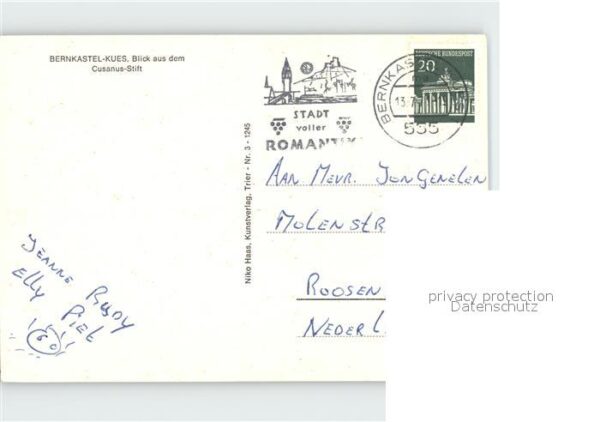 BERNKASTEL-KUES, Blick aus dem
Cusanus-Stift
STADT
voller
ROMANTIK
BERNKAS
13.7
555
DEUTSCHE BUNDESPOST
20
Niko Haas, Kunstverlag, Trier - Nr. 3 - 1245
AAN MEVR. JONGENELEN
MOLENSTR
ROOSEN
NEDERL
JEANNE RUDY
Elly PIET
privacy protection
Datenschutz